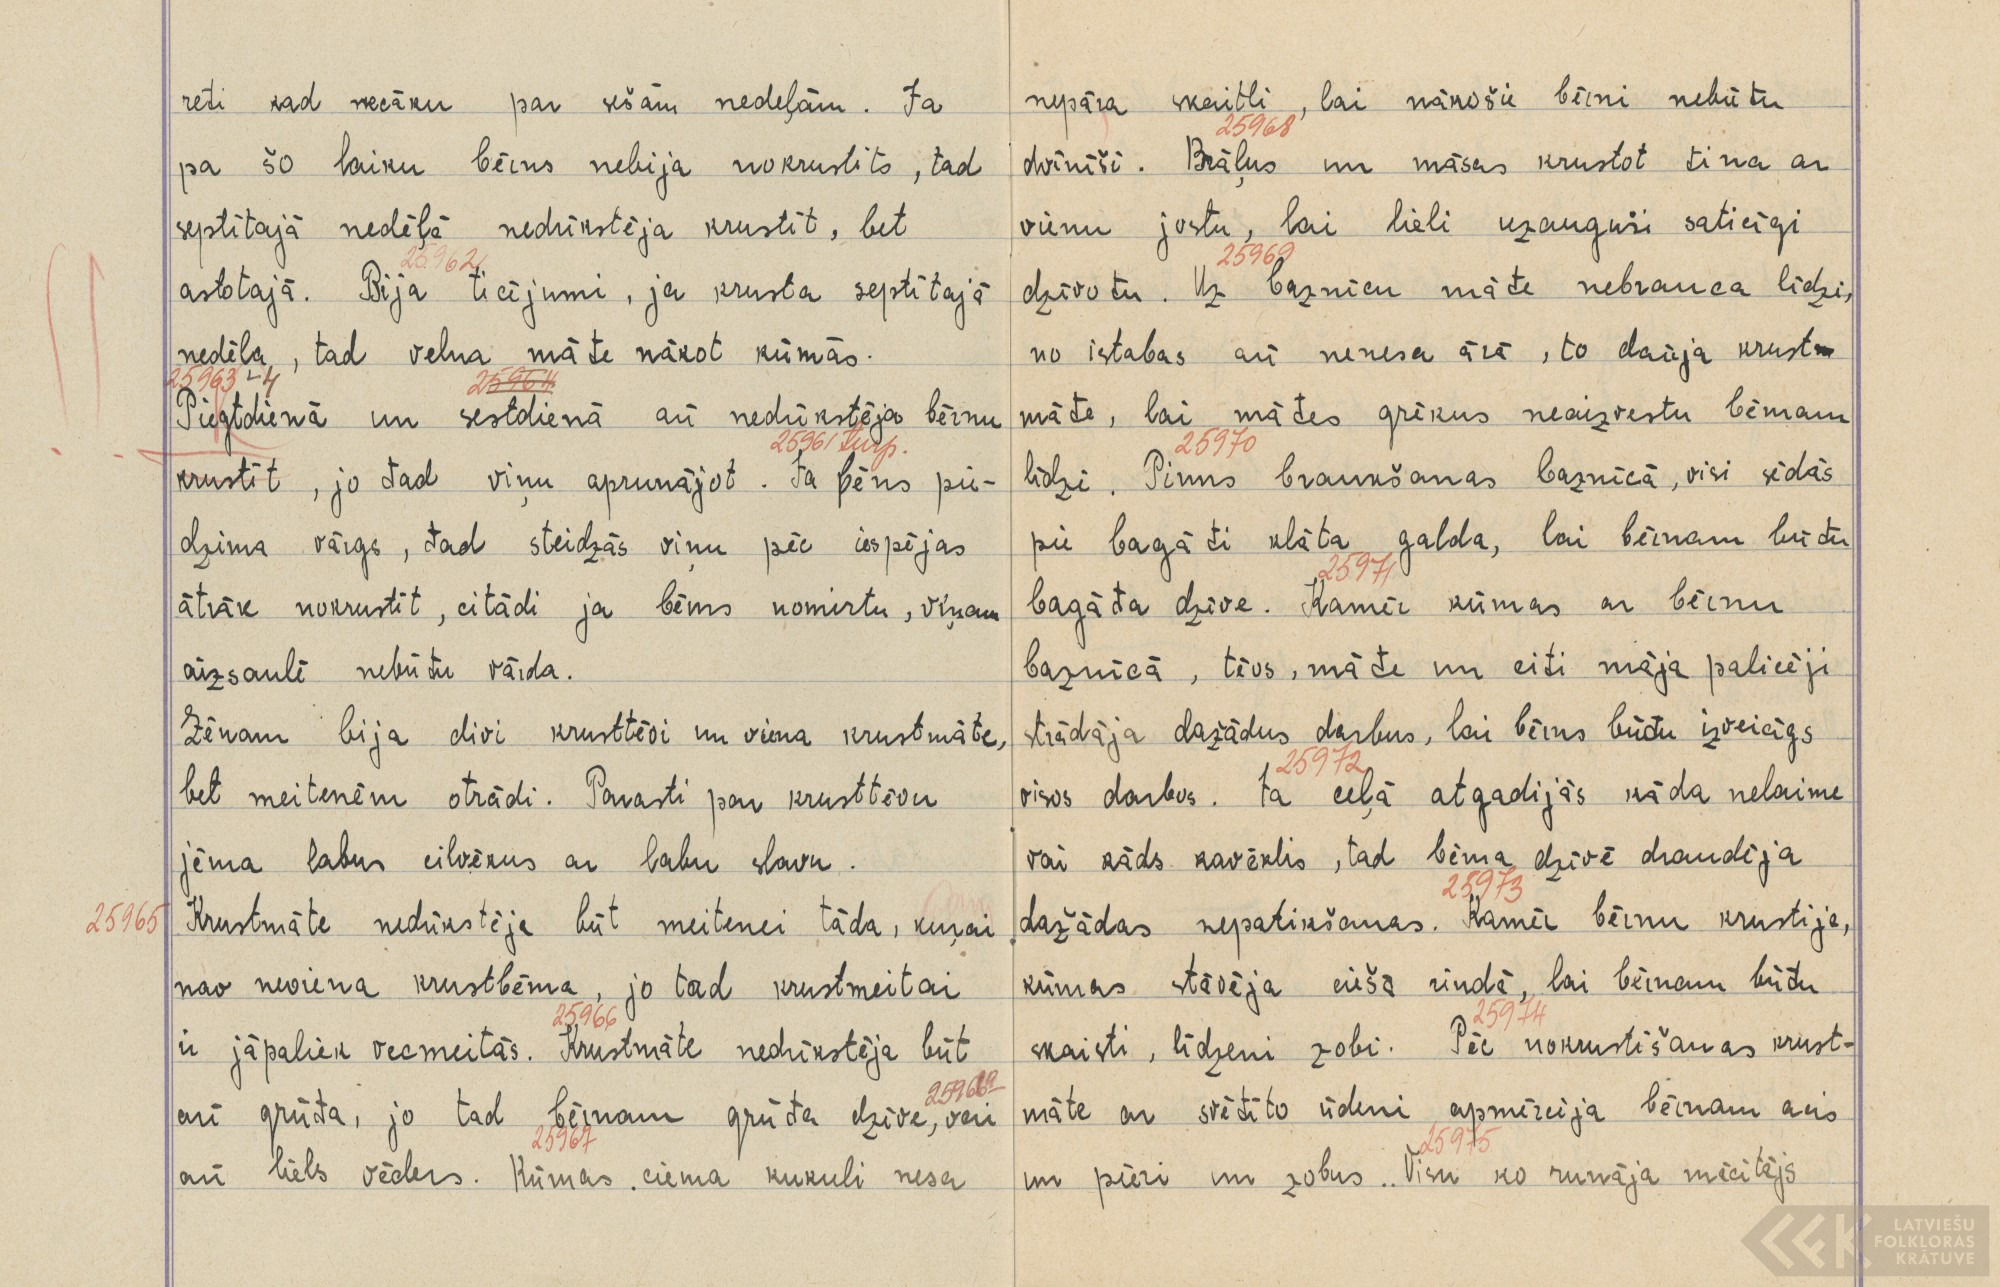 reti kad vecāku par sešām nedeļām. Ja
pa šo laiku bērns nebija nokrustīts, tad
septītajā nedēļā nedrīkstēja krustīt, bet
25962
astotajā. Bija ticējumi, ja krusta septītajā
nedēļa, tad velna māte nākot kūmās.
25963-4 25964
Piegtdienā un sestdienā arī nedrīkstēja bērnu
25961 turp.
krustīt, jo tad viņu aprunājot. Ja bērns pie-
dzima vārgs, tad steidzās viņu pēc iespējas
ātrāk nokrustīt, citādi ja bērns nomirtu, viņam
aizsaulē nebūtu vārda.
Zēnam bija divi krusttēvi un viena krustmāte,
bet meitenēm otrādi. Parasti par krusttēvu
jēma labus cilvēkus ar labu slavu.
25965 Krustmāte nedrīkstēja būt meitenei tāda, kuŗai
nav neviena krustbērna, jo tad krustmeitai
25966
ir jāpaliek vecmeitās. Krustmāte nedrīkstēja būt
25966a
arī grūta, jo tad bērnam grūta dzīve, vai
25967
arī liels vēders. Kūmas ciema kukuli nesa
nepāra skaitli, lai nākošie bērni nebūtu
25968
dvīnīši. Brāļus un māsas krustot tina ar
vienu jostu, lai lieli uzauguši saticīgi
25969
dzīvotu. Uz baznīcu māte nebrauca līdzi,
no istabas arī nenesa ārā, to darīja krust-
māte, lai mātes grēkus neaizvestu bērnam
25970
līdzi. Pirms braukšanas baznīcā, visi sēdās
pie bagāti klāta galda, lai bērnam būtu
25971
bagāta dzīve. Kamēr kūmas ar bērnu
baznīcā, tēvs, māte un citi māja palicēji
strādāja dažādus darbus, lai bērns būtu izveicīgs
25972
visos darbos. Ja ceļā atgadijās kāda nelaime
vai kāds kavēklis, tad bērna dzīvē draudēja
25973
dažādas nepatikšanas. Kamēr bērnu krustija,
kūmas stāvēja ciešā rindā, lai bērnam būtu
25974
skaisti, līdzeni zobi. Pēc nokrustīšanas krust-
māte ar svētīto ūdeni apmērcēja bērnam acis
25975
un pieri un zobus.. Visu ko runāja mācītājs
LATVIEŠU
FOLKLORAS
KRĀTUVE